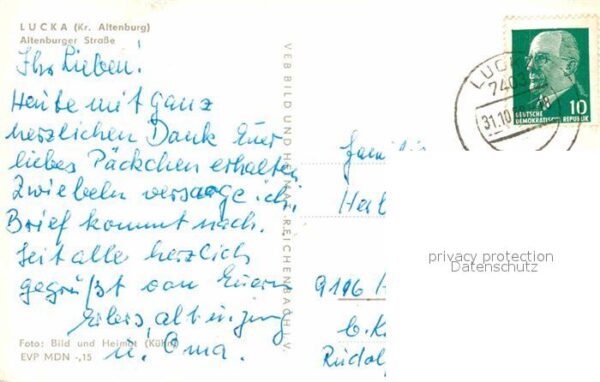 LUCKA (Kr. Altenburg)
Altenburger Straße
Ihr Lieben!
Heute mit ganz
herzlichen Dank Euer
liebes Päckchen erhalten
Zwiebeln versorge ich.
Brief kommt nach.
Seit alle herzlich
gegrüßt von Euern
u. Oma.
Foto: Bild und Heimat (Kühn)
EVP MDN -,15
VEB BILD UND HEIMAT REICHENBACH I. V.
LUCKA
7403
31.10
10
DEUTSCHE
DEMOKRATISCHE REPUBLIK
Familie
9116
b. K
Rudol
privacy protection
Datenschutz